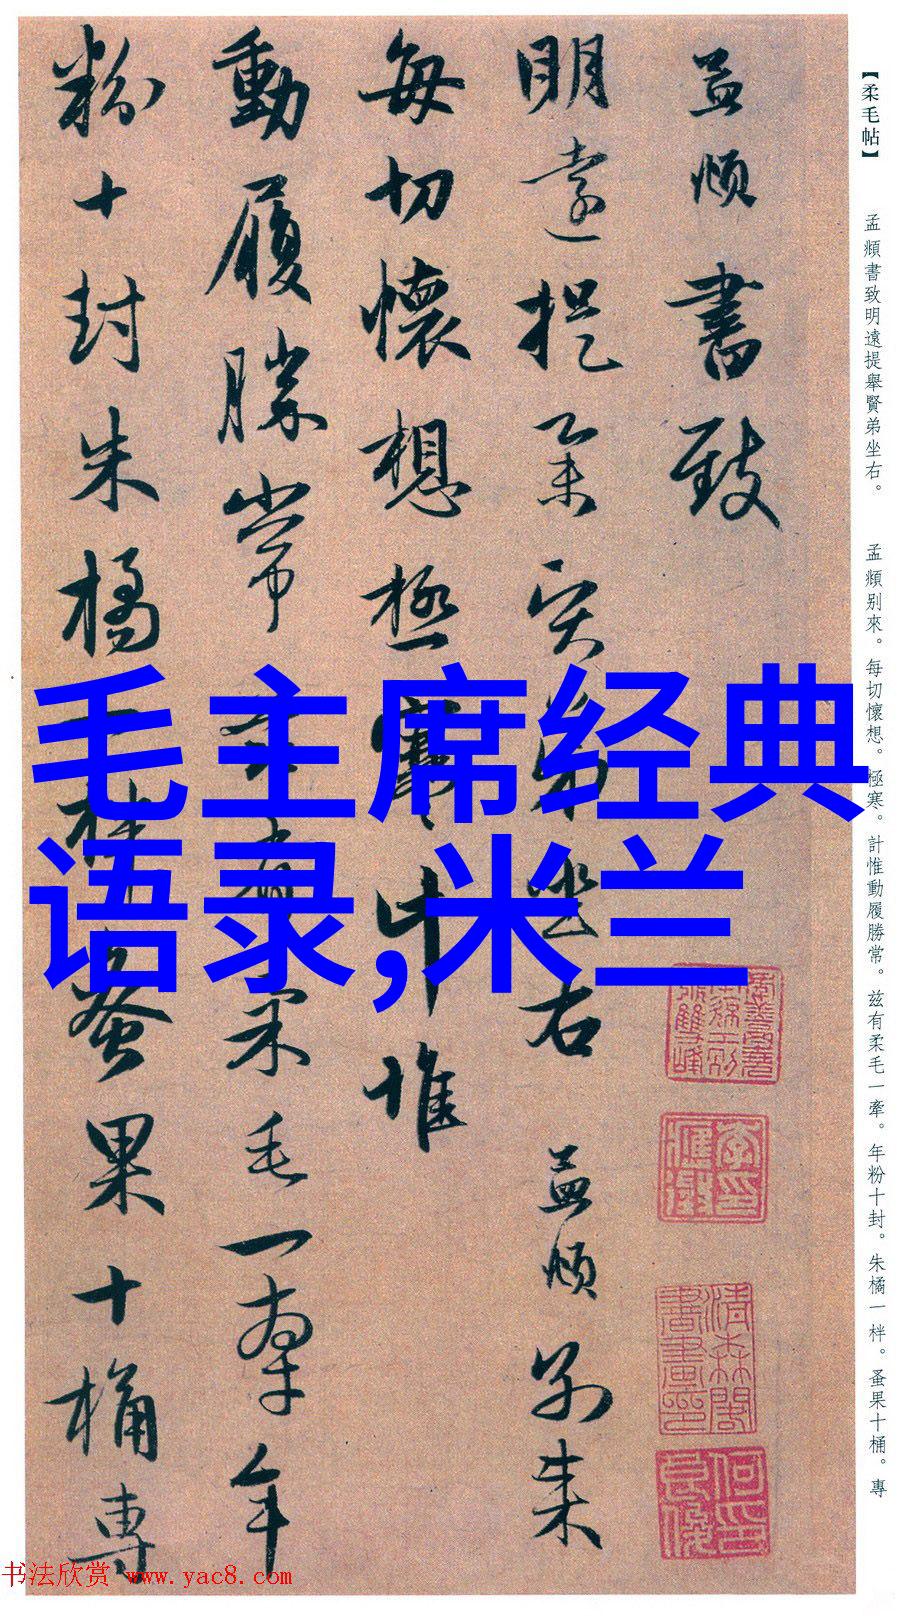 【柔毛帖】
孟頫書致明遠提舉賢弟坐右。
孟頫别來。每切懷想。極寒。計惟動履勝常。兹有柔毛一牽。年粉十封。朱橘一柈。蚤果十桶。專
孟頫書致
明遠提舉賢弟坐右 孟頫別來
每切懷想極寒計惟
動履勝常茲有柔毛一牽年
粉十封朱橘一柈蚤果十桶專
毛主席经典
语录,米兰
书法欣赏 www.yac8.com